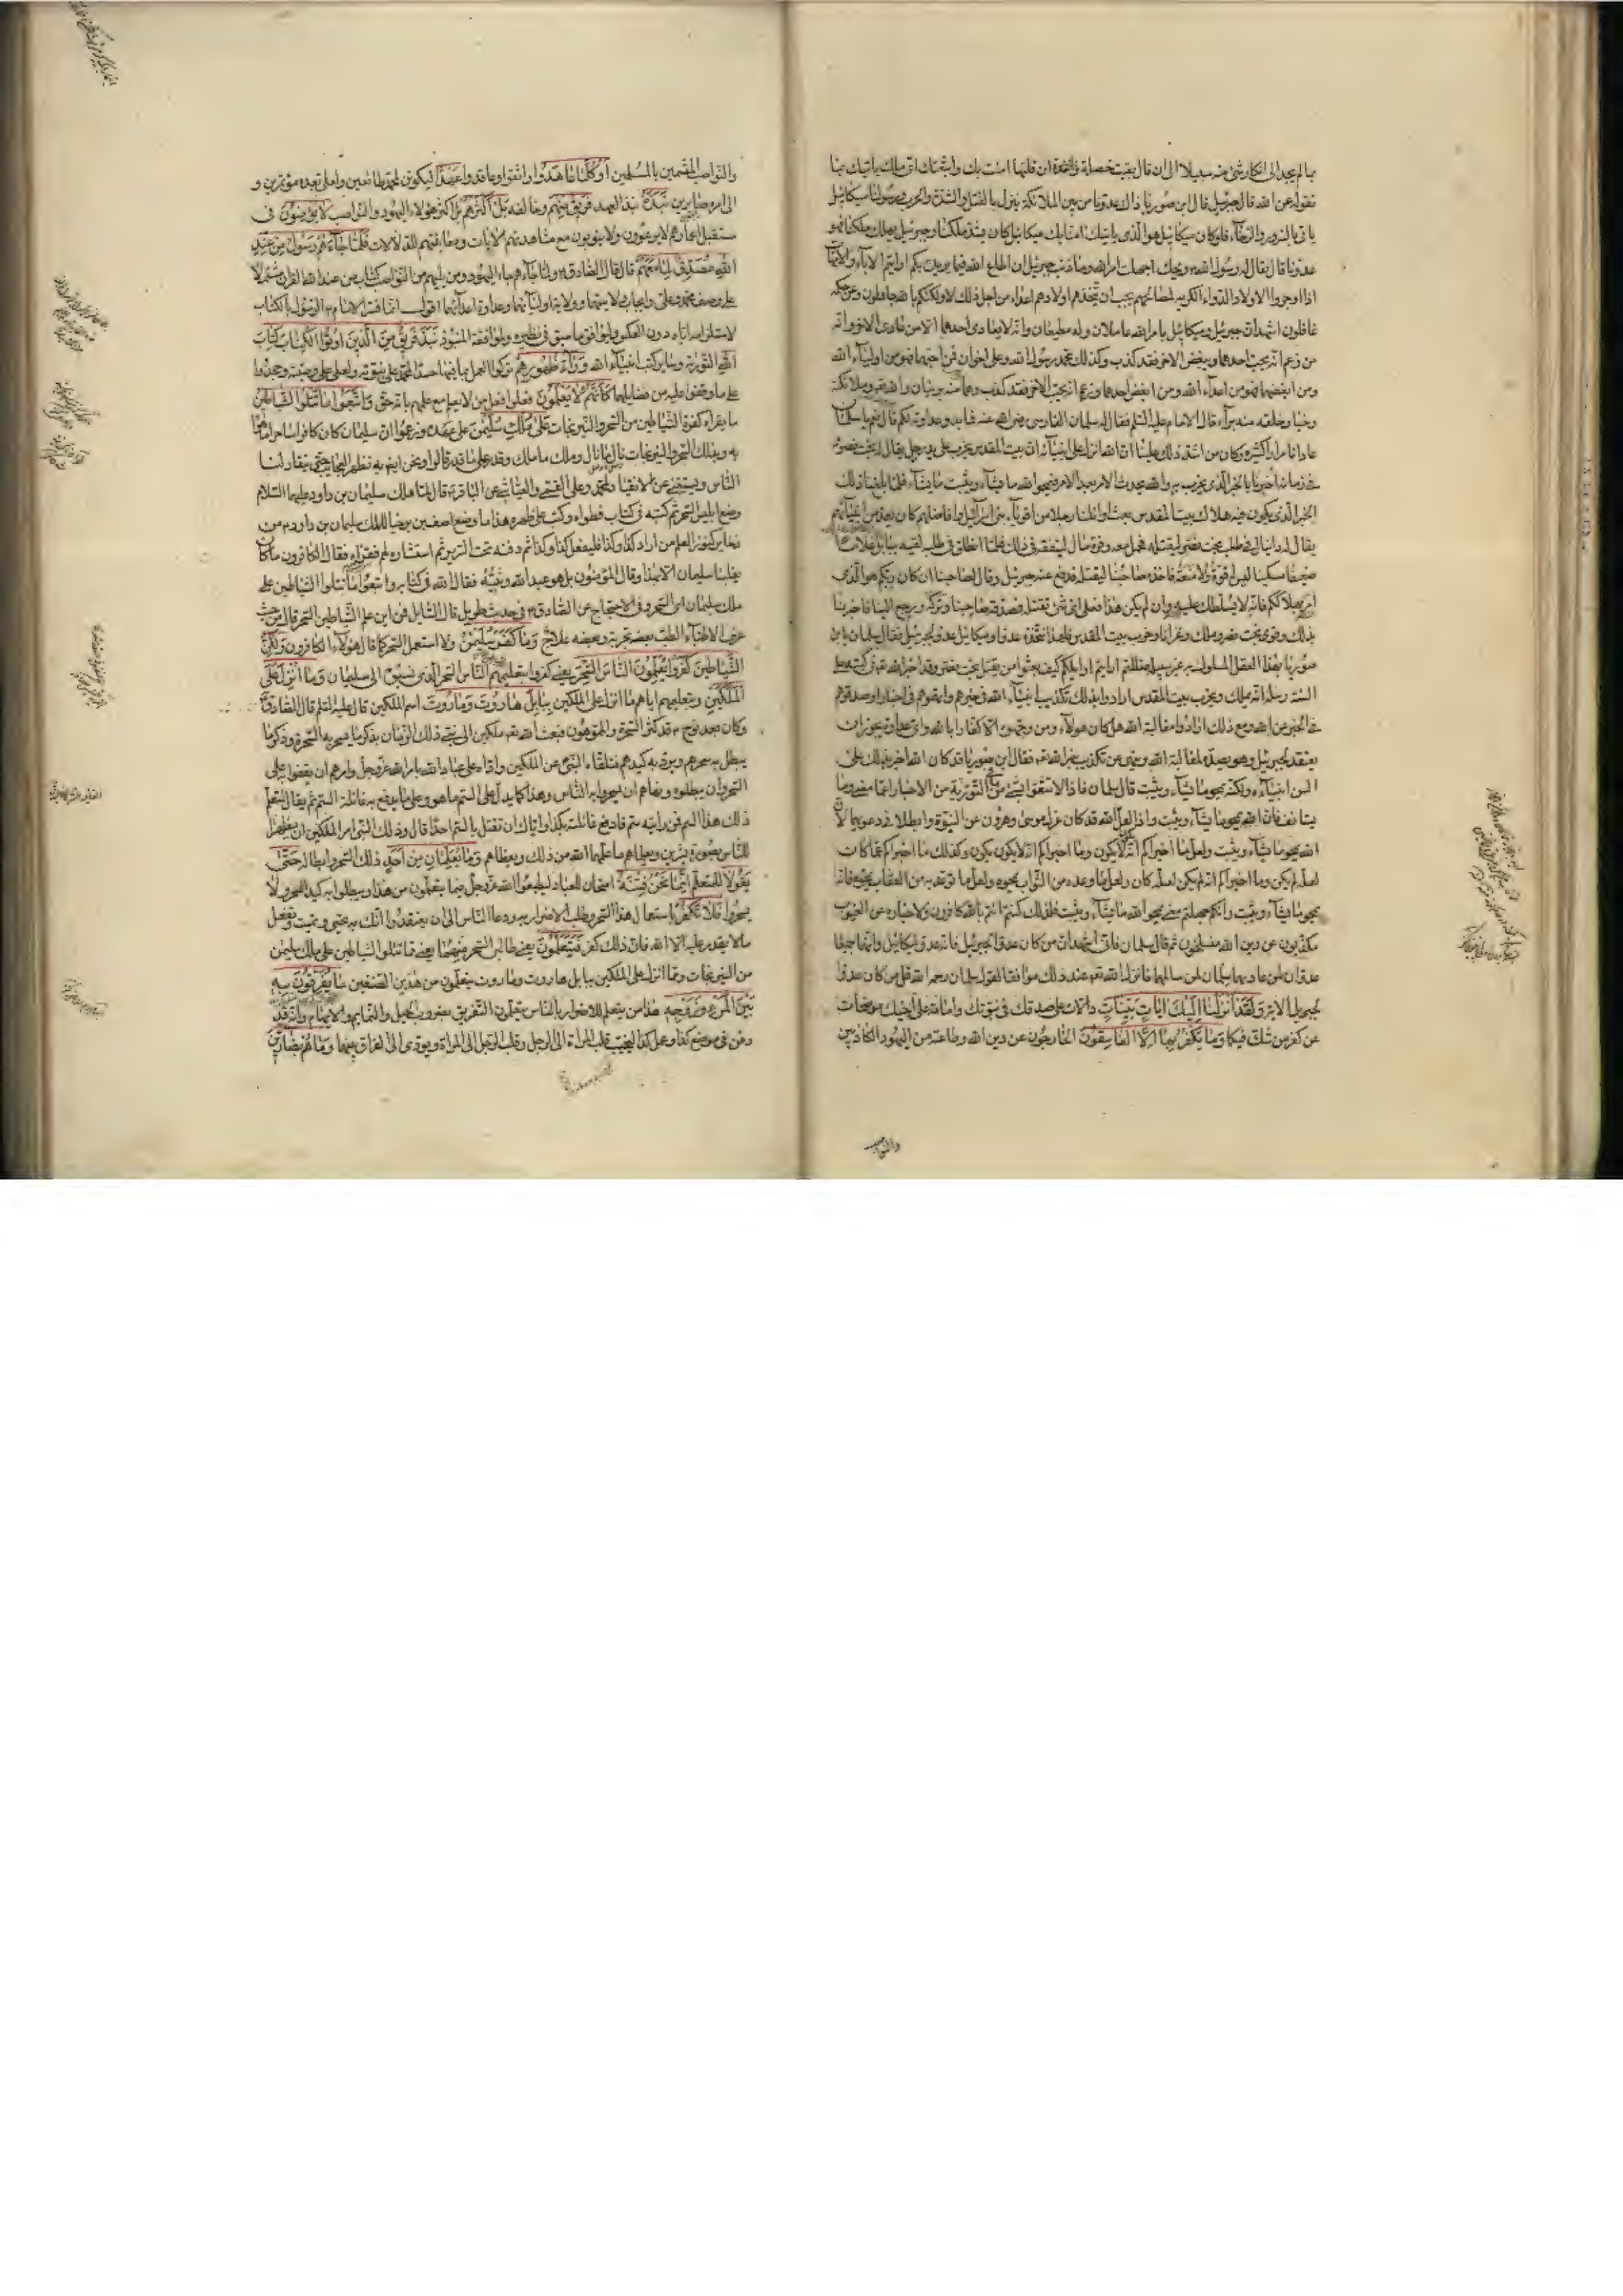 بما لم يجد الى انكار شئ منه سبيلا الى ان قال بقيت خصلة واحدة ان قلتها امنت بك واتبعتك اى ملك ياتيك بما
تقوله عن الله قال جبرئيل قال ابن صوريا ذاك عدونا من بين الملائكة ينزل بالقتل والشدة والحرب ورسولنا ميكائيل
ياتى بالسرور والرخاء فلو كان ميكائيل هو الذى ياتيك امنا بك ميكائيل كان يشدد ملكنا وجبرئيل يهلك ملكنا فهو
عدونا قال فقال له رسول الله ويحك اجهلت امر الله وما ذنب جبرئيل ان اطاع الله فيما يريده بكم ارايتم الاباء والامهات
اذا اوجروا الاولاد الدواء الكريه لمصالحهم يجب ان يتخذهم اولادهم اعداء من اجل ذلك لا ولكنكم بالله جاهلون وعن حكمه
غافلون اشهد ان جبرئيل وميكائيل بامر الله عاملان وله مطيعان وانه لا يعادى احدهما الا من عادى الاخر وانه
من زعم انه يحب احدهما ويبغض الاخر فقد كذب وكذلك محمد رسول الله وعلى اخوان فمن احبهما فهو من اولياء الله
ومن ابغضهما فهو من اعداء الله ومن ابغض احدهما وزعم انه يحب الاخر فقد كذب وهما منه بريئان والله وملائكته
وخيار خلقه منه براء قال الامام عليه السلم فقال له سلمان الفارسى رضى الله عنه فما بدو عداوته لكم قال نعم يا سلمان
عادانا مرارا كثيرة وكان من اشد ذلك علينا ان الله انزل على انبيائه ان بيت المقدس يخرب على يد رجل يقال له بخت نصر
فى زمانه اخبرنا بالخبر الذى يخرب به والله يحدث الامر بعد الامر فيمحوا الله ما يشاء ويثبت ما يشاء فلما بلغنا ذلك
الخبر الذى يكون فيه هلاك بيت المقدس بعث اوائلنا رجلا من اقوياء بنى اسرائيل وافاضلهم كان يعد من انبيائهم
يقال له دانيال فى طلب بخت نصر ليقتله فحمل معه وقر مال لينفقه فى ذلك فلما انطلق فى طلبه لقيه ببابل غلاما
ضعيفا مسكينا ليس له قوة ولا منعة فاخذه صاحبنا ليقتله فدفع عنه جبرئيل وقال لصاحبنا ان كان ربكم هو الذى
امر بهلاككم فانه لا يسلطك عليه وان لم يكن هذا فعلى اى شئ تقتله فصدقه صاحبنا وتركه ورجع الينا فاخبرنا
بذلك وقوى بخت نصر وملك وغزانا وخرب بيت المقدس فلهذا نتخذه عدوا وميكائيل عدو لجبرئيل فقال سلمان يابن
صوريا بهذا العقل المسلوك به غير سبيله ضللتم ارايتم اوائلكم كيف بعثوا من يقتل بخت نصر وقد اخبر الله تعالى فى كتبه على
السنة رسله انه يملك ويخرب بيت المقدس ارادوا بذلك تكذيب انبياء الله فى خبرهم او اتهموهم فى اخبارهم او صدقوهم
فى الخبر عن الله ومع ذلك ارادوا مغالبة الله هل كان هؤلاء ومن وجهوه الا كفارا بالله واى عداوة يجوز ان
يعتقد لجبرئيل وهو يصد به عن مغالبة الله وينهى عن تكذيب خبر الله تعالى فقال ابن صوريا قد كان الله اخبر بذلك على
السن انبيائه ولكنه يمحو ما يشاء ويثبت قال سلمان فاذا لا تثقوا بشئ مما فى التورية من الاخبار عما مضى وما
يستانف فان الله يمحو ما يشاء ويثبت واذا لعل الله قد كان عزل موسى وهرون عن النبوة وابطلا فى دعويهما لان
الله يمحو ما يشاء ويثبت ولعل ما اخبراكم انه يكون لا يكون وما اخبراكم انه لا يكون يكون وكذلك ما اخبراكم عما كان
لعله لم يكن وما اخبراكم انه لم يكن لعله كان ولعل ما وعده من الثواب يمحوه ولعل ما توعد به من العقاب يمحوه فانه
يمحو ما يشاء ويثبت وانكم جهلتم معنى يمحوا الله ما يشاء ويثبت فلذلك كنتم انتم بالله كافرون ولاخباره عن الغيوب
مكذبون وعن دين الله منسلخون ثم قال سلمان فانى اشهد ان من كان عدوا لجبرئيل فانه عدو لميكائيل وانهما جميعا
عدوان لمن عاداهما سلمان لمن سالمهما فانزل الله تعالى عند ذلك موافقا لقول سلمان رحمه الله قل من كان عدوا
لجبريل الاية ولقد انزلنا اليك ايات بينات دالات على صدقك فى نبوتك وامامة على اخيك موضحات
عن كفر من شك فيكما وما يكفر بها الا الفاسقون الخارجون عن دين الله وطاعته من اليهود الكاذبين
والنواصب
والنواصب المتسمين بالمسلمين اوكلما عاهدوا واثقوا وعاقدوا عهدا ليكونن لمحمد طائعين ولعلى بعده مؤتمرين و
الى امره صابرين نبذه نبذ العهد فريق منهم وخالفه بل اكثرهم بل اكثر هؤلاء اليهود والنواصب لا يؤمنون فى
مستقبل اعمارهم لا يرعوون ولا يتوبون مع مشاهدتهم للايات ومعاينتهم للدلالات فلما جاءهم رسول من عند
الله مصدق لما معهم قال قال الصادق ولما جاءهم جاء اليهود ومن يليهم من النواصب كتاب من عند الله القران مشتملا
على وصف محمد وعلى وايجاب ولايتهما وولاية اوليائهما وعداوة اعدائهما اقول انما فسر الامام الرسول بالكتاب
لاستلزامه اياه دون العكس وليوافق ما سبق فى نظيره وليوافقه المنبوذ نبذ فريق من الذين اوتوا الكتاب كتاب
الله التورية وساير كتب انبياء الله وراء ظهورهم تركوا العمل بما فيها حسدا لمحمد على نبوته ولعلى على وصيته وجحدوا
على ما وقفوا عليه من فضايلهما كانهم لا يعلمون فعلوا فعل من لا يعلم مع علمهم بانه حق واتبعوا ما تتلوا الشياطين
ما يقراه كفرة الشياطين من السحر والنيرنجات على ملك سليمن على عهده وزعموا ان سليمان كان كافرا ساحرا ماهرا
به وبذلك السحر والنيرنجات نال ما نال وملك ما ملك وقدر على ما قدر قالوا ونحن ايضا به نظهر العجائب حتى ينقاد لنا
الناس ونستغنى عن الانقياد لمحمد وعلى القمى والعياشى عن الباقر قال لما هلك سليمان بن داود عليهما السلام
وضع ابليس السحر ثم كتبه فى كتاب فطواه وكتب على ظهره هذا ما وضع اصف بن برخيا للملك سليمان بن داود من
ذخاير كنوز العلم من اراد كذا وكذا فليفعل كذا وكذا ثم دفنه تحت السرير ثم استثاره لهم فقراه فقال الكافرون ما كان
يغلبنا سليمان الا بهذا وقال المؤمنون بل هو عبد الله ونبيه فقال الله فى كتابه واتبعوا ما تتلوا الشياطين على
ملك سليمان اى السحر وفى الاحتجاج عن الصادق فى حديث طويل قال السائل فمن اين علم الشياطين السحر قال من حيث
عرف الاطباء الطب بعضه تجربة وبعضه علاج وما كفر سليمن ولا استعمل السحر كما قال هؤلاء الكافرون ولكن
الشياطين كفروا يعلمون الناس السحر يعنى كفروا بتعليمهم الناس السحر الذى نسبوه الى سليمان وما انزل على
الملكين وبتعليمهم اياهم ما انزل على الملكين ببابل هاروت وماروت اسم الملكين قال عليه السلم قال الصادق
وكان بعد نوح قد كثر السحرة والمموهون فبعث الله تعالى ملكين الى نبى ذلك الزمان بذكر ما يسحر به السحرة وذكر ما
يبطل به سحرهم ويرد به كيدهم فتلقاه النبى عن الملكين واداه على عباد الله بامر الله عز وجل وامرهم ان يقفوا على
السحر وان يبطلوه ونهاهم ان يسحروا به الناس وهذا كما يدل على السم ما هو وعلى ما يدفع به غائلة السم ثم يقال للمتعلم
ذلك هذا السم فمن رايته سم فادفع غائلته بكذا واياك ان تقتل بالسم احدا قال وذلك النبى امر الملكين ان يظهرا
للناس بصورة بشرين ويعلماهم ما علمهما الله من ذلك ويعظاهم وما يعلمان من احد ذلك السحر وابطاله حتى
يقولا للمتعلم انما نحن فتنة امتحان للعباد ليطيعوا الله عز وجل فيما يتعلمون من هذا ويبطلوا به كيد السحرة ولا
يسحروا فلا تكفر باستعمال هذا السحر وطلب الاضرار به ودعاء الناس الى ان يعتقدوا انك به تحيى وتميت وتفعل
ما لا يقدر عليه الا الله فان ذلك كفر فيتعلمون يعنى طالبى السحر منهما يعنى مما تتلوا الشياطين على ملك سليمن
من النيرنجات ومما انزل على الملكين ببابل هاروت وماروت يتعلمون من هذين الصنفين ما يفرقون به
بين المرء وزوجه هذا من يتعلم للاضرار بالناس يتعلمون التفريق بضروب الحيل والتمايم والايهام وانه قد
دفن فى موضع كذا وعمل كذا ليحبب قلب المراة الى الرجل وقلب الرجل الى المراة ويؤدى الى الفراق بينهما وما هم بضارين